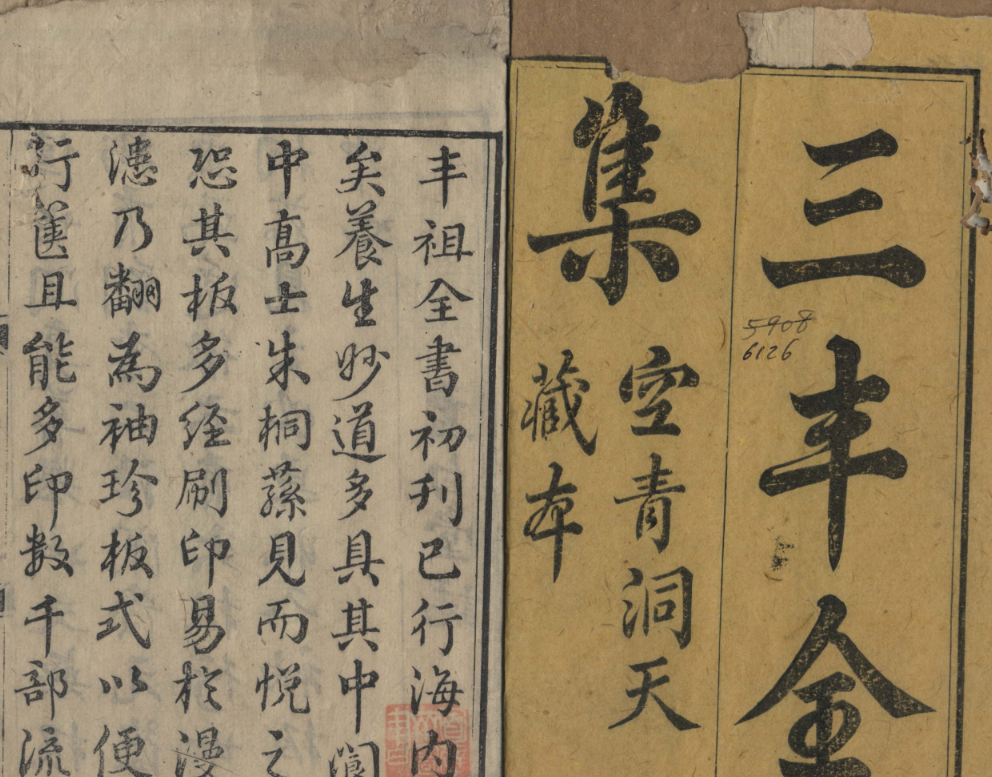 三丰全
集
空青洞天
藏本
5908
6126
丰祖全書初刊已行海内
矣養生妙道多具其中閬
中髙士朱桐蓀見而悦之
恐其板多經刷印易於漫
漶乃翻為袖珍板式以便
行篋且能多印数千部流